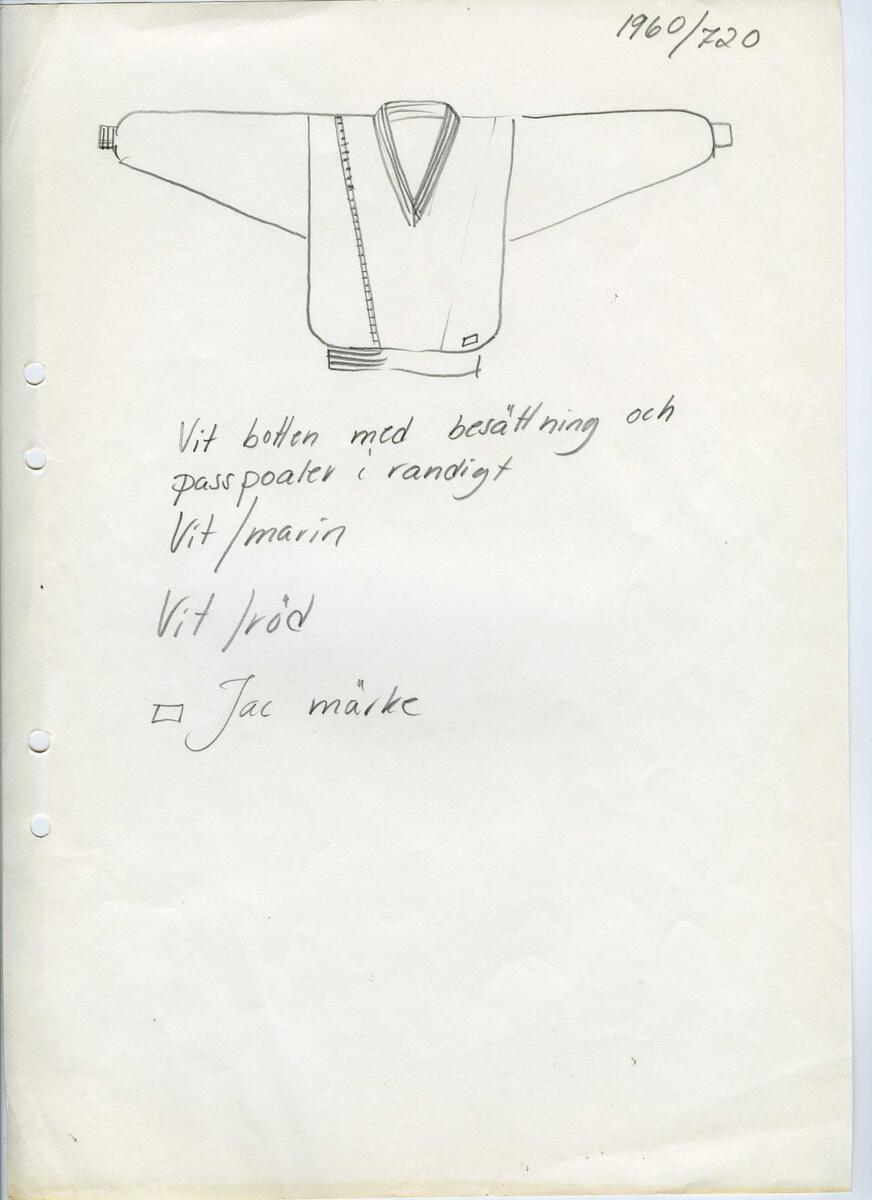 1960/720
Vit botten med besättning och
passpoaler i randigt
Vit/marin
Vit/röd
Jac märke